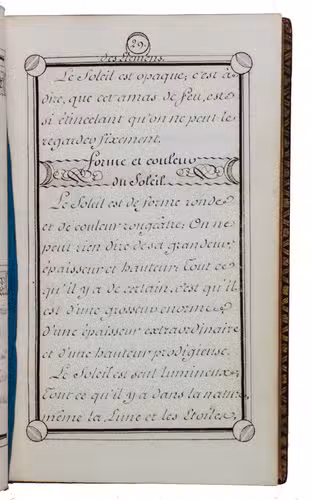 29.
des Elémens.
Le Soleil est opaque; c'est à
dire, que cet amas de feu, est
si étincelant qu'on ne peut le
regarder fixement.
forme et couleur
du Soleil.
Le Soleil est de forme ronde
et de couleur rougeâtre. On ne
peut rien dire de sa grandeur,
épaisseur et hauteur. Tout ce
qu'il y a de certain, c'est qu'il
est d'une grosseur enorme
d'une épaisseur extraordinaire
et d'une hauteur prodigieuse.
Le Soleil est seul lumineux,
Tout ce qu'il y a dans la nature,
même la Lune et les Etoiles,